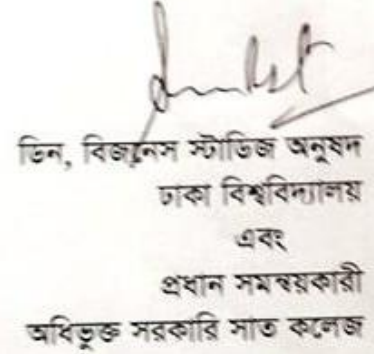 ডিন, বিজনেস স্টাডিজ অনুষদ
ঢাকা বিশ্ববিদ্যালয়
এবং
প্রধান সমন্বয়কারী
অধিভুক্ত সরকারি সাত কলেজ